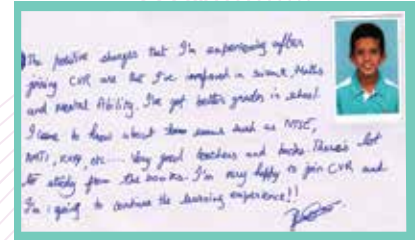 The positive changes that I'm experiencing after
joining CVR are that I've improved in science, Maths
and Mental Ability. I've got better grades in school
I came to know about exams such as NTSE,
etc.... Very good teachers and books. There's lot
to study from the books. I'm very happy to join CVR and
I'm going to continue the learning experience!!